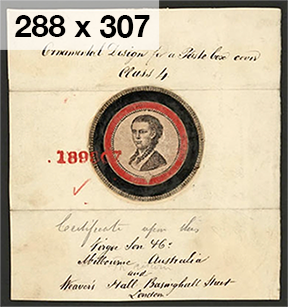 288 x 307
Ornamental Design for a Paste box cover
Class 4
Certificate upon this
& Co.
Melbourne Australia
and
Weavers Hall Basinghall Street
London